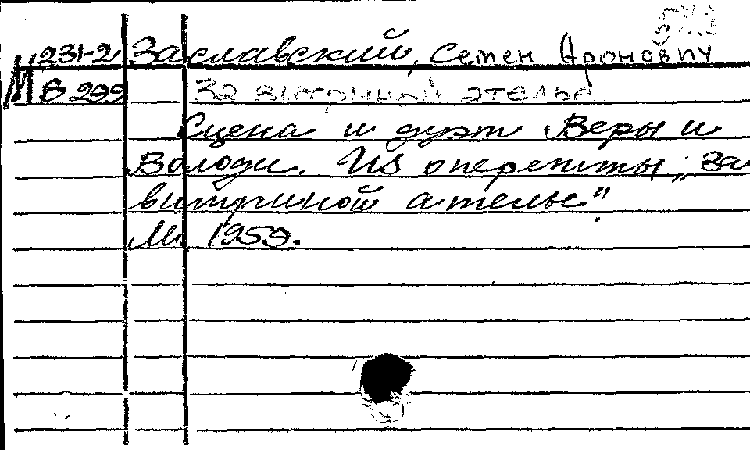 М 231-2 Заславский, Семен Аронович
В 299 За витриной ателье
Сцена и дуэт Веры и
Володи. Из оперетты „За
витриной ателье"
М. 1959.